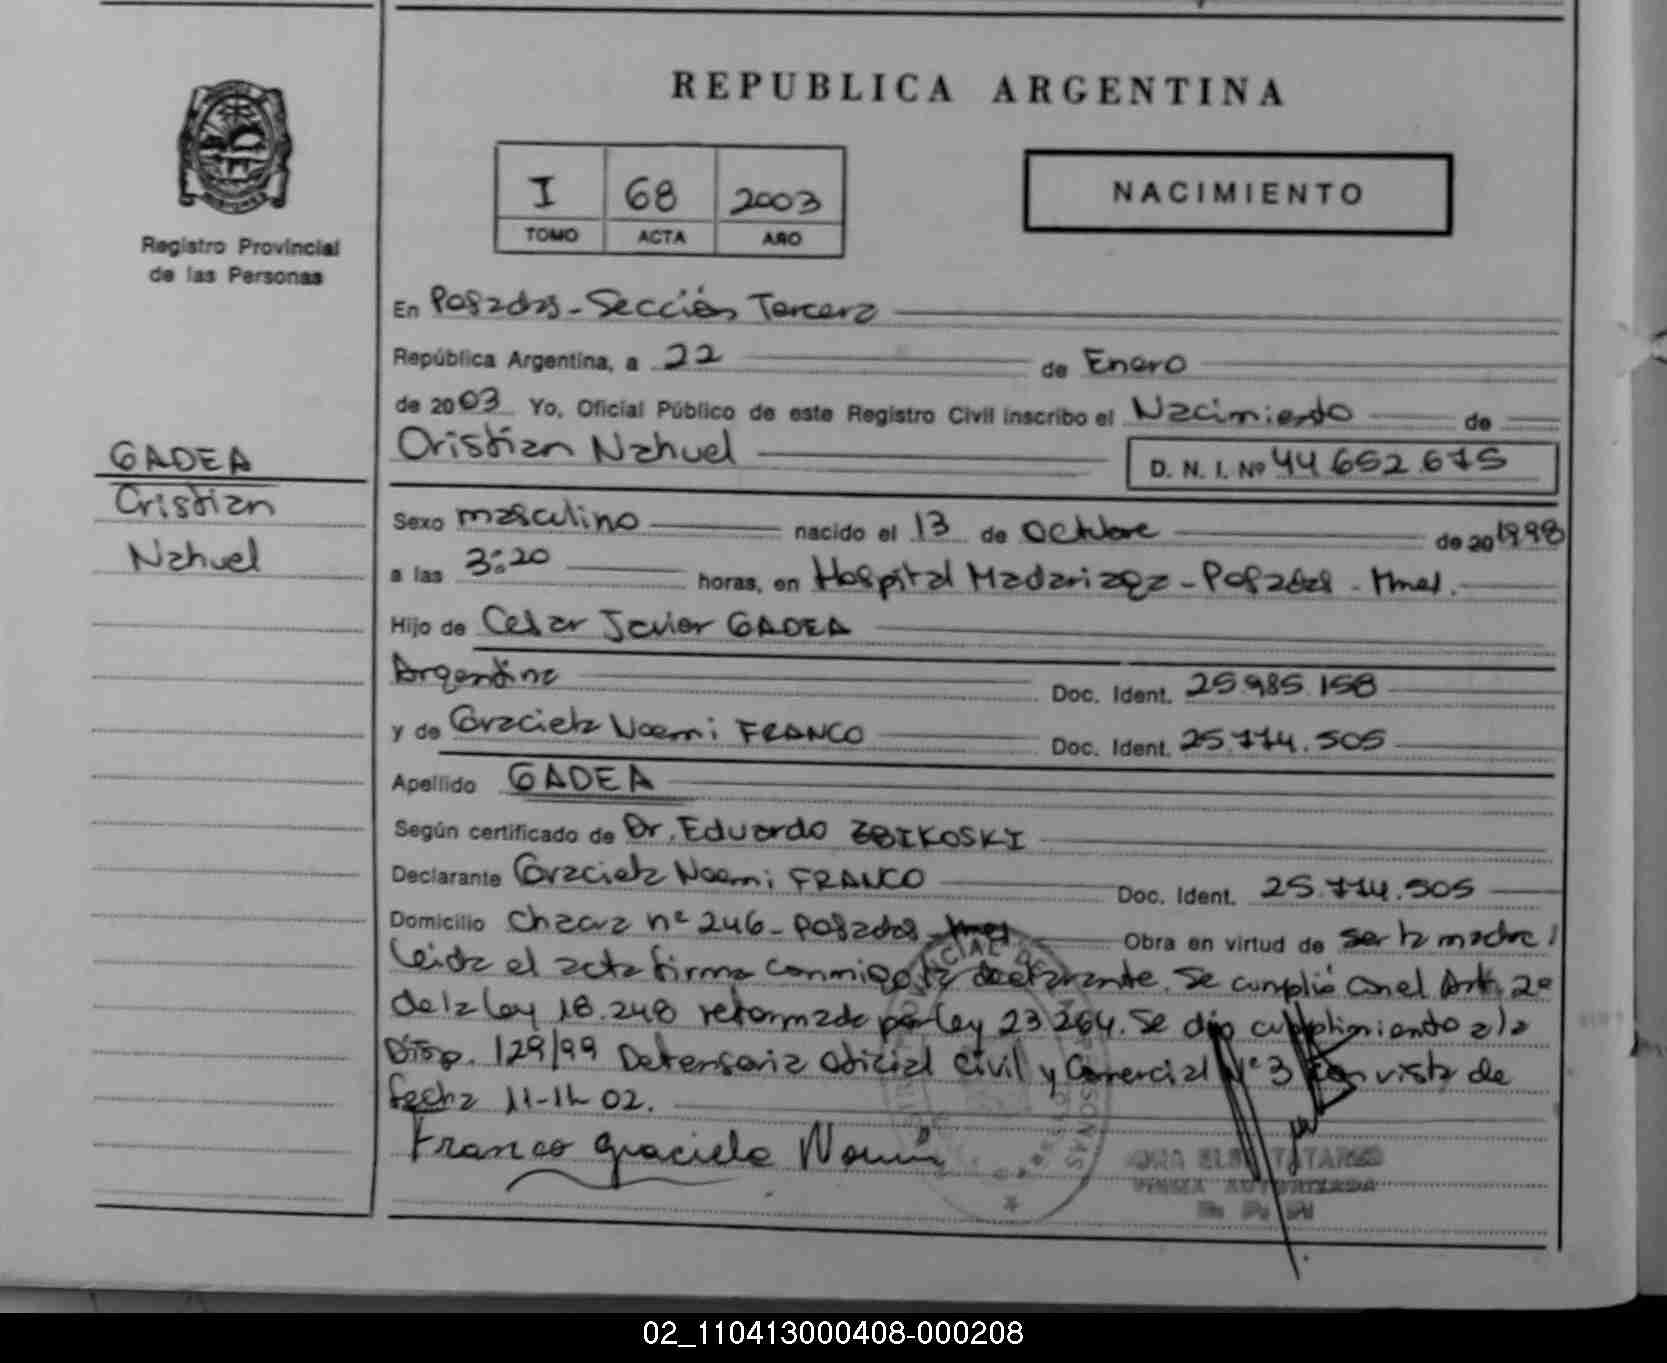 REPUBLICA ARGENTINA
I 68 2003
TOMO ACTA AÑO
NACIMIENTO
Registro Provincial
de las Personas
En Posadas - Sección Tercera
República Argentina, a 22 de Enero
de 2003 Yo, Oficial Público de este Registro Civil inscribo el Nacimiento de
Cristian Nahuel D. N. I. Nº 44 652.675
GADEA
Cristian
Nahuel
Sexo masculino nacido el 13 de Octubre de 20 1998
a las 3:20 horas, en Hospital Madariaga - Posadas - Mnes.
Hijo de Cesar Javier GADEA
Argentina Doc. Ident. 25.985.158
y de Graciela Noemi FRANCO Doc. Ident. 25.774.505
Apellido GADEA
Según certificado de Dr. Eduardo ZBIKOSKI
Declarante Graciela Noemi FRANCO Doc. Ident. 25.774.505
Domicilio Chacra nº 246 - Posadas - Mnes Obra en virtud de ser la madre
Leida el acta firma conmigo la declarante. Se cumplió con el Art. 2º
de la Ley 18.248 reformado por Ley 23.264. Se dio cumplimiento a la
Disp. 129/99 Defensoria Oficial Civil y Comercial Nº 3 con vista de
fecha 11-11-02.
Franco Graciela Noemi
FIRMA AUTORIZADA
02_110413000408-000208